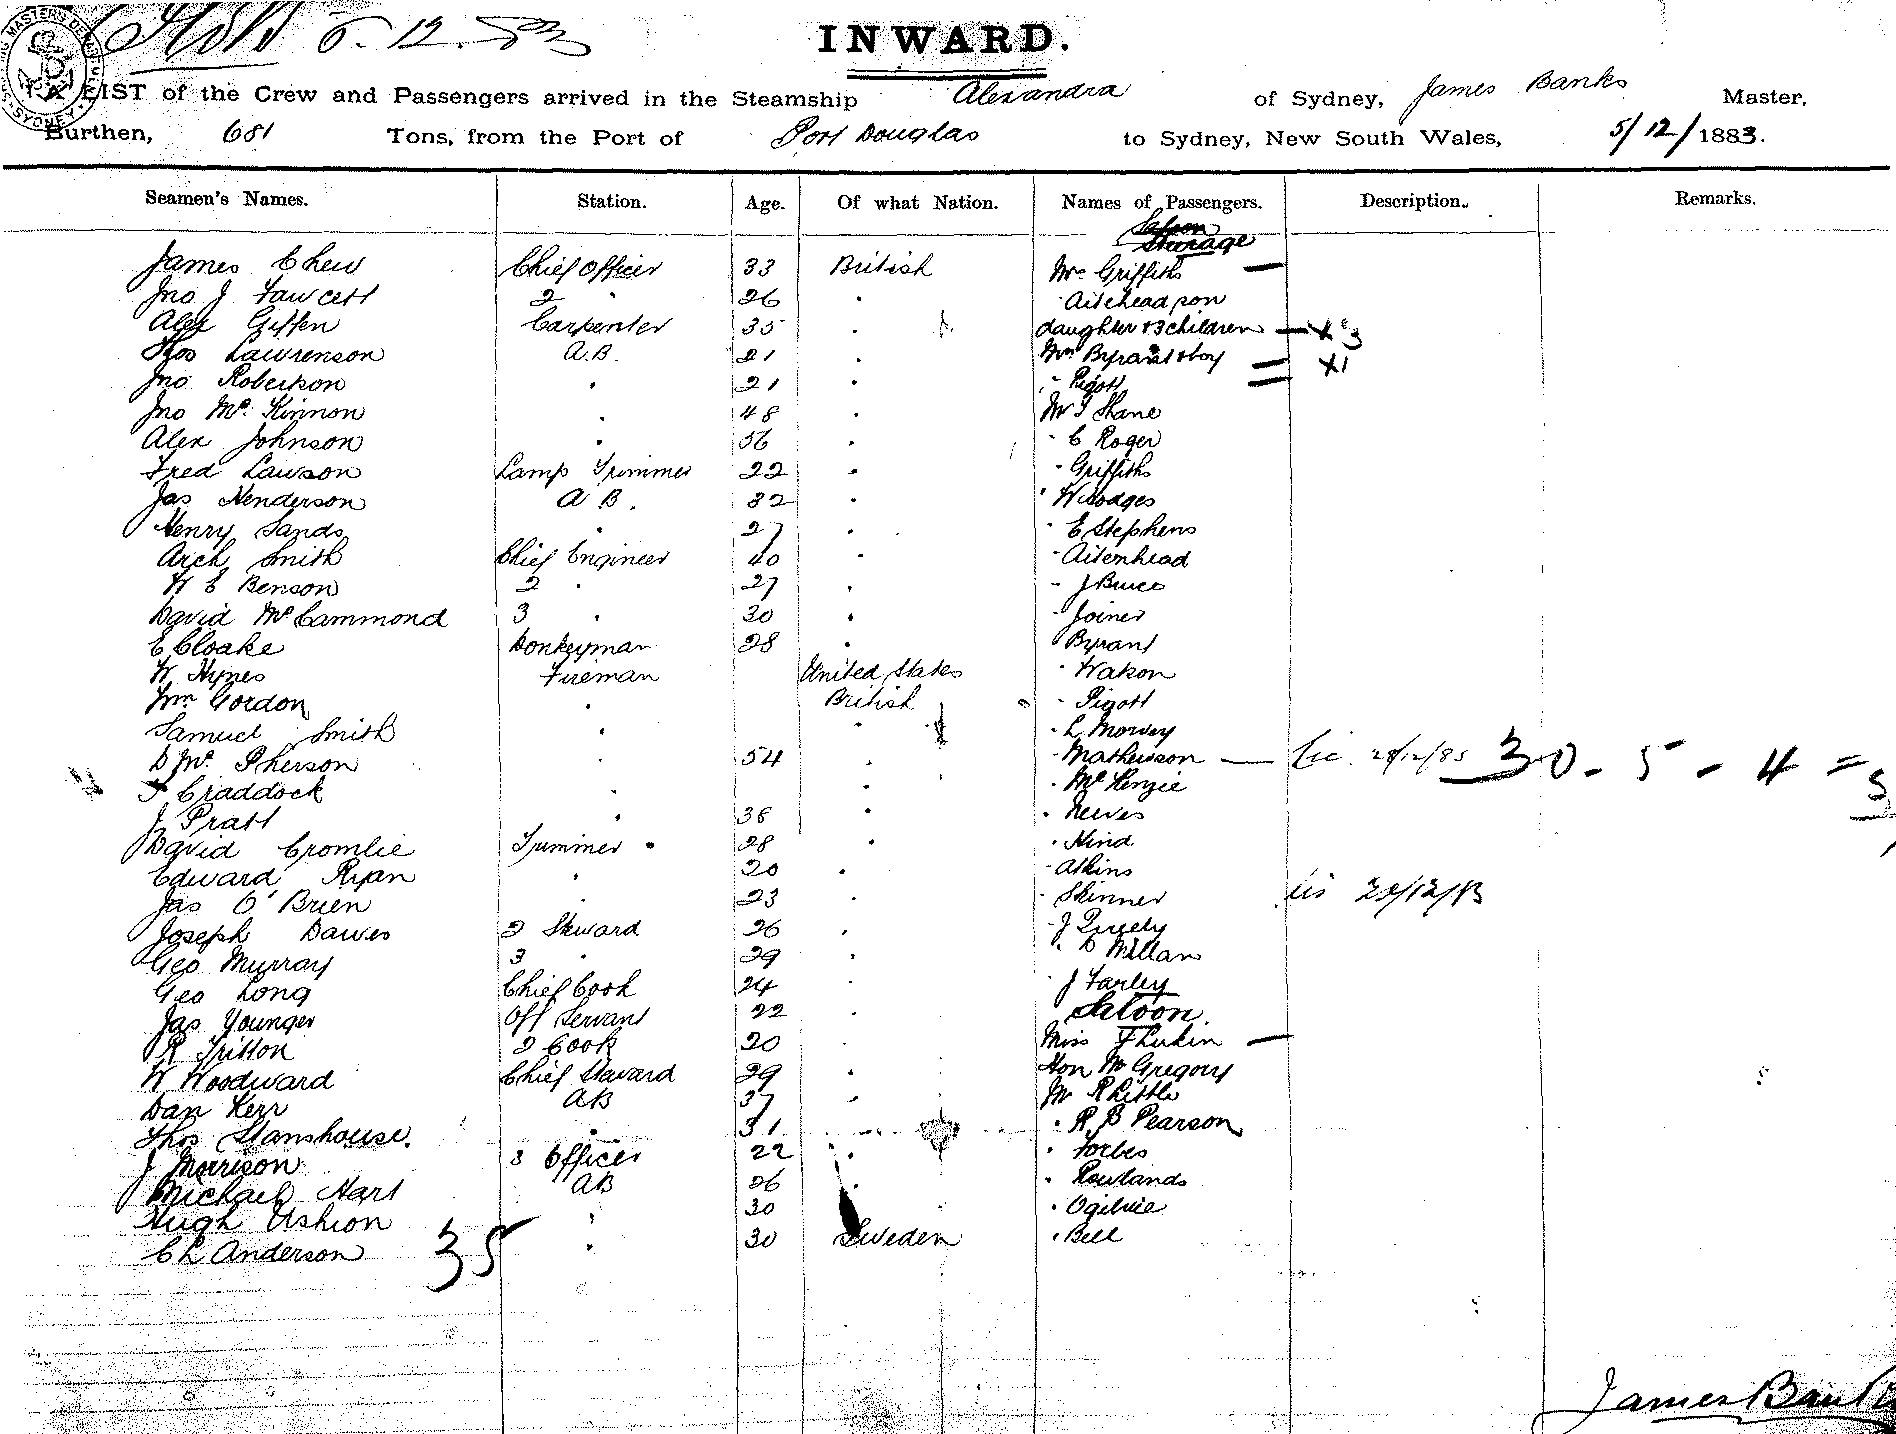 6.12.83
INWARD.
A LIST of the Crew and Passengers arrived in the Steamship Alexandra of Sydney, James Banks Master,
Burthen, 681 Tons, from the Port of Port Douglas to Sydney, New South Wales, 5/12/1883.
Seamen's Names. Station. Age. Of what Nation. Names of Passengers. Description. Remarks.
Saloon
Sturage
James Chew Chief Officer 33 British Mrs Griffiths —
Jno J Fawcett 2 " 26 " " Aitchead son
Alex Giffen Carpenter 35 " daughter & 3 children — x 3
Thos Lawrenson A.B. 21 " Mrs Byrant & boy = x1
Jno Robertson " 21 " " Pigott
Jno Mc Kinnon " 48 " Mr T Shane
Alex Johnson " 56 " " C Roger
Fred Lawson Lamp Trimmer 22 " " Griffiths
Jas Henderson A B. 32 " " W Hodges
Henry Sands " 27 " " E Stephens
Arch Smith Chief Engineer 40 " " Aitenhead
W E Benson 2 " 27 " " J Bruce
David McCammond 3 " 30 " " Joiner
E Cloake Donkeyman 28 " " Byrant
W Hynes Fireman United States " Watson
Wm Gordon " British " Pigott
Samuel Smith " " " L Morvey
D Mc Pherson 54 " " Mathewson — 30 - 5 - 4 =
T Craddock " " " McKenzie
J Pratt " 38 " " Neeves
David Cromlie Trimmer " 28 " " Hind
Edward Ryan " 20 " " Atkins
Jas O'Brien " 23 " Skinner 20/12/83
Joseph Dawes 2 Steward 26 " " J
Geo Murray 3 " 29 " " D Millan
Geo Long Chief Cook 24 " " J Farley
Jas Younger Off Servant 22 " Saloon.
R Tritton 2 Cook 20 " Miss F Lukin —
W Woodward Chief Steward 29 " Hon Mc Gregory
Dan Kerr AB 37 " Mr R Little
Thos Stanshouse. " 31 " " R B Pearson
J Morrison 3 Officer 22 " " Forbes
Michael Hart AB 26 " " Rowlands
Hugh Ashton " 30 " Ogilvie
C L Anderson " 30 Sweden " Bell
35
James Banks